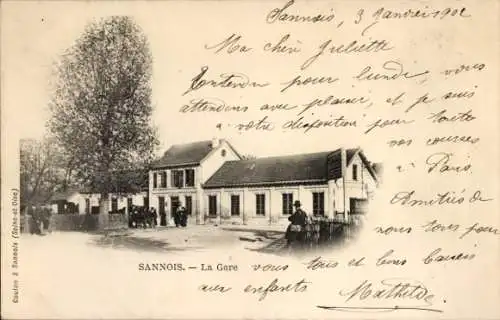 Sannois, 3 Janvier 1902
Ma chère Juliette
Entendu pour lundi. Nous vous
attendons avec plaisir, et je suis
à votre disposition pour toutes
vos courses
à Paris.
Amitiés de
nous tous pour
vous tous et bons baisers
aux enfants
Mathilde
SANNOIS. — La Gare
Coulon à Sannois (Seine-et-Oise)